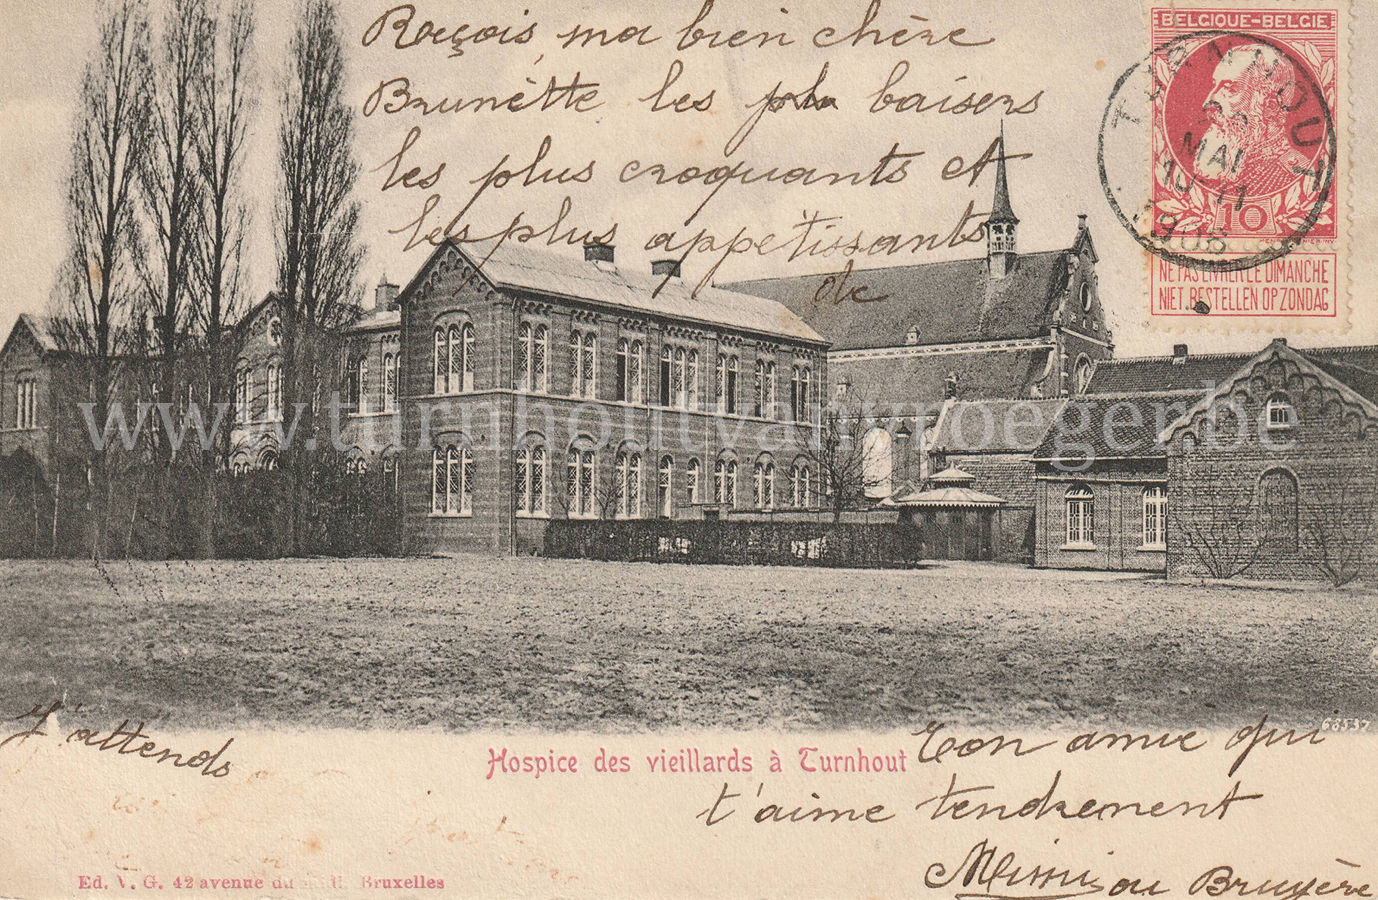 Reçois, ma bien chère
Brunètte les baisers
les plus croquants et
les plus appetissants
de
BELGIQUE-BELGIE
TURNHOUT
MAI
10-11
1908
10
NE PAS LIVRER LE DIMANCHE
NIET BESTELLEN OP ZONDAG
www.turnhoutvanvroeger.be
68537
J'attends
Hospice des vieillards à Turnhout
Ton amie qui
t'aime tendrement
Mimi ou Bruyère
Ed. V. G. 42 avenue du Midi. Bruxelles